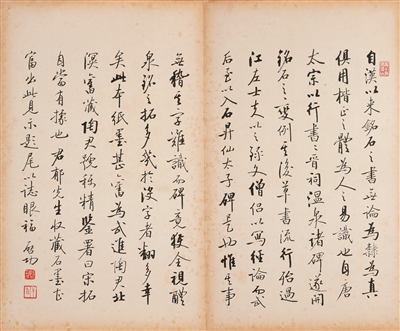 自漢以來銘石之書無論為隸為真
俱用楷正之體為人之易識也自唐
太宗以行書書晉祠溫泉諸碑遂開
銘石之變例其後草書流行殆過
江左士夫以之錄文僧侶以寫經論而武
后至以入石昇仙太子碑是也惟其事
無稽其字難識而碑竟獲全視醴
泉銘之拓多幾於沒字者翻多幸
矣此本紙墨甚舊為武進陶君北
溟舊藏陶君號稱精鑒署曰宋拓
自當有據也 君郁先生收藏石墨甚
富出此見示題尾以誌眼福 啟功